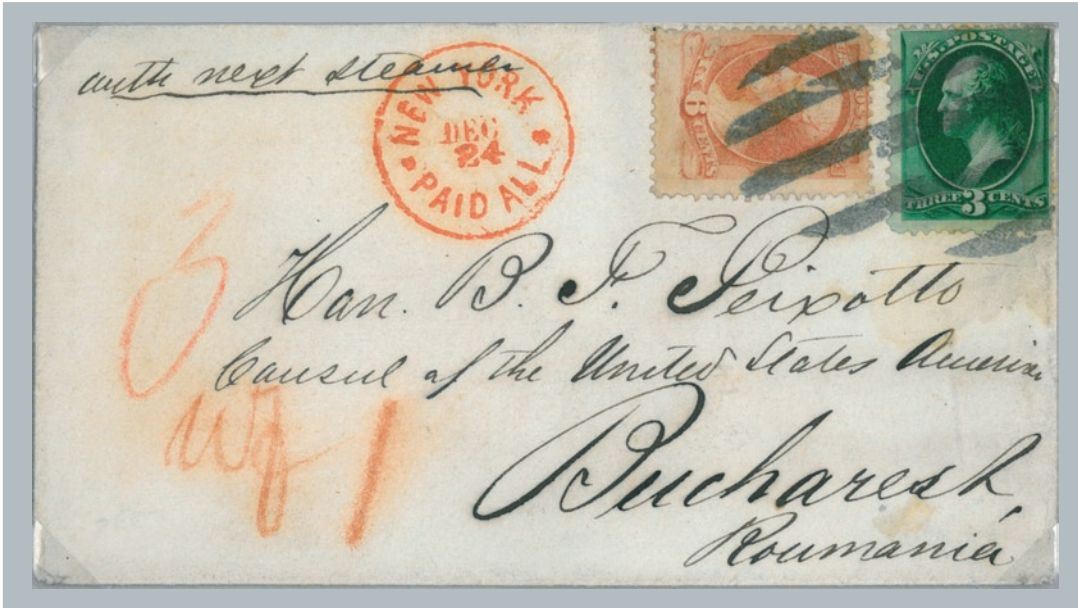 with next steamer
NEW YORK
DEC
24
PAID ALL
SIX
6
CENTS
U.S. POSTAGE
THREE 3 CENTS
3
Wf 1
Hon. B. F. Peixotto
Consul of the United States America
Bucharest,
Roumania